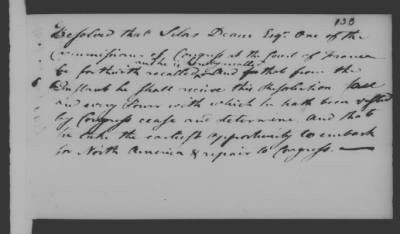 138
Resolved that Silas Deane Esqr. One of the
Commissioners of Congress at the Court of France
be forthwith recalled, and that from the
and he is
he shall receive this Resolution
and every Power with which he hath been vested
by Congress cease and determine and that
he take the earliest opportunity to embark
for North America & repair to Congress.